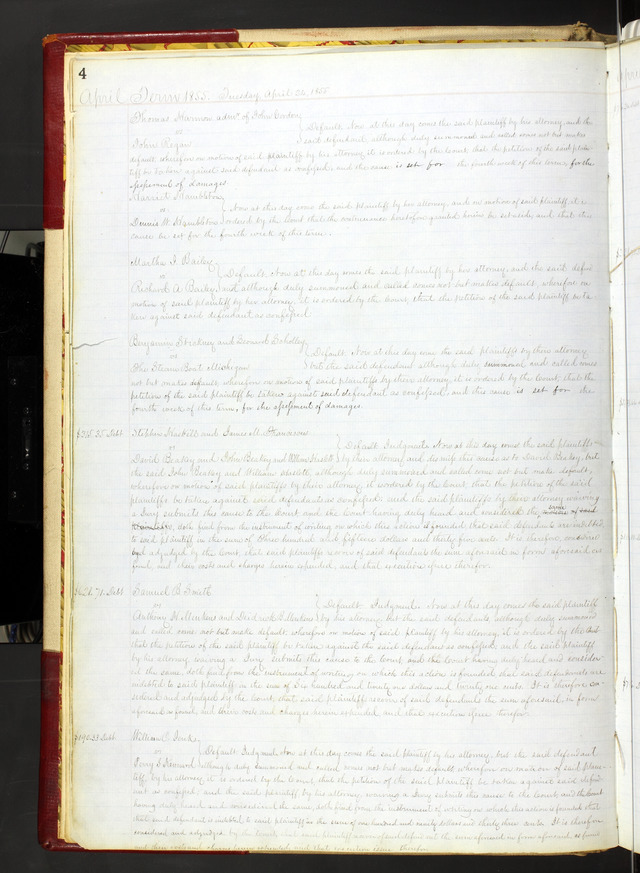 4
April Term 1855. Tuesday, April 24, 1855
Thomas Harmon admr. of John Cordon,
vs
John Regan
Default. Now at this day comes the said plaintiff by his attorney, and the
said defendant, although duly summoned and called comes not but makes
default, wherefore on motion of said plaintiff by his attorney, it is ordered by the Court that the petition of the said plain-
tiff be taken against said defendant as confessed and the cause is set for the fourth week of this term, for the
assessment of damages.
Harriet Hambleton,
vs.
Dennis W. Hambleton
Now at this day comes the said plaintiff by her attorney, and on motion of said plaintiff it is
ordered by the Court that the continuance heretofore granted herein be set aside, and that this
cause be set for the fourth week of this term.
Martha J. Bailey
vs
Richard A. Bailey
Default. Now at this day comes the said plaintiff by her attorney, and the said defend
ant although duly summoned and called comes not but makes default, wherefore on
motion of said plaintiff by her attorney, it is ordered by the Court, that the petition of the said plaintiff be ta-
ken against said defendant as confessed.
Benjamin Stickney and Leonard Scholley
vs
The Steam Boat Michigan
Default. Now at this day come the said plaintiffs by their attorney
but the said defendant although duly summoned and called comes
not but makes default wherefore on motion of said plaintiffs by their attorney, it is ordered by the Court, that the
petition of the said plaintiff be taken against said defendant as confessed, and this cause is set for the
fourth week of this term, for the assessment of damages.
$315.35 Debt
Stephen Haskell and
vs
David Beakey and John Beakey and William
Default Judgment. Now at this day comes the said plaintiffs
by their attorney and dismiss this cause as to David Beakey, but
the said John Beakey and William although duly summoned and called come not but make default,
wherefore on motion of said plaintiffs by their attorney it is ordered by the Court, that the petition of the said
plaintiffs be taken against said defendants as confessed: and the said plaintiffs by their attorney waiving
a Jury submits this cause to the Court and the Court having duly heard and considered the same
doth find from the instrument of writing on which this action is founded, that said defendants are indebted
to said plaintiff in the sum of Three hundred and fifteen dollars and thirty five cents. It is therefore, considered
and adjudged by the Court, that said plaintiffs recover of said defendants the sum aforesaid in form aforesaid as
found, and their costs and charges herein expended, and that execution issue therefor.
$621.71. Debt
Samuel B. Smith
vs
Anthony H. Menkens and Diedrick G. Menkens
Default. Judgment. Now at this day comes the said plaintiff
by his attorney, but the said defendants, although duly summoned
and called come not but make default wherefore on motion of said plaintiff by his attorney, it is ordered by the Court
that the petition of the said plaintiff be taken against the said defendants as confessed; and the said plaintiff
by his attorney waiving a Jury submits this cause to the Court and the Court having duly heard and consider-
ed the same, doth find from the instrument of writing on which this action is founded, that said defendants are
indebted to said plaintiff in the sum of Six hundred and twenty one dollars and seventy one cents. It is therefore con-
sidered and adjudged by the Court, that said plaintiff recover of said defendants the sum aforesaid, in form
aforesaid as found, and their costs and charges herein expended and that execution issue therefor.
Debt
William C. Jenks,
vs
Default Judgment. Now at this day comes the said plaintiff by his attorney, but the said defendant
although duly summoned and called, comes not but makes default wherefore on motion of said plain-
tiff, by his attorney, it is ordered by the Court, that the petition of the said plaintiff be taken against said defend-
ant as confessed; and the said plaintiff by his attorney, waiving a Jury submits this cause to the Court, and the Court
having duly heard and considered the same, doth find from the instrument of writing on which this action is founded that
that said defendant is indebted to said plaintiff in the sum of one hundred and ninety dollars and thirty three cents. It is therefore
considered and adjudged by the Court, that said plaintiff recover of said defendant the sum aforesaid in form aforesaid as found
and costs and charges herein expended and that execution issue therefor.